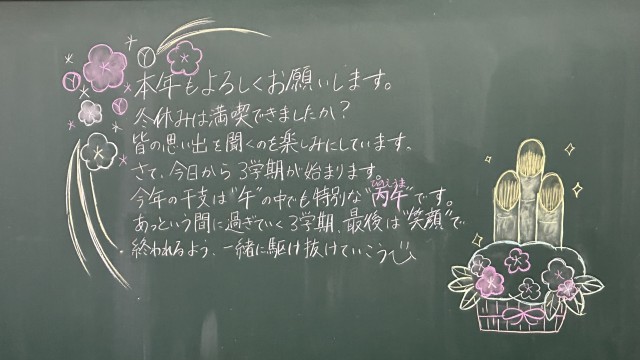 本年もよろしくお願いします。
冬休みは満喫できましたか？
皆の思い出を聞くのを楽しみにしています。
さて、今日から3学期が始まります。
今年の干支は"午"の中でも特別な"丙午"です。
ひのえうま
あっという間に過ぎていく3学期、最後は"笑顔"で
終われるよう、一緒に駆け抜けていこう